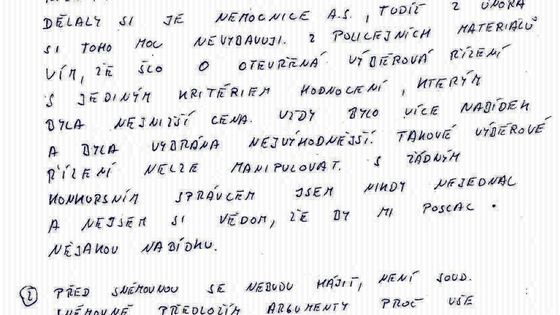 DĚLALY SI JE NEMOCNICE A.S., TUDÍŽ Z ÚNORA
SI TOHO MOC NEVYBAVUJI. Z POLICEJNÍCH MATERIÁLŮ
VÍM, ŽE ŠLO O OTEVŘENÁ VÝBĚROVÁ ŘÍZENÍ
S JEDINÝM KRITÉRIEM HODNOCENÍ, KTERÝM
BYLA NEJNIŽŠÍ CENA. VŽDY BYLO VÍCE NABÍDEK
A BYLA VYBRÁNA NEJVÝHODNĚJŠÍ. TAKOVÉ VÝBĚROVÉ
ŘÍZENÍ NELZE MANIPULOVAT. S ŽÁDNÝM
KONKURSNÍM SPRÁVCEM JSEM NIKDY NEJEDNAL
A NEJSEM SI VĚDOM, ŽE BY MI POSLAL
NĚJAKOU NABÍDKU.
2 PŘED SNĚMOVNOU SE NEBUDU HÁJIT, NENÍ SOUD.
SNĚMOVNĚ PŘEDLOŽÍM ARGUMENTY PROČ VŠE